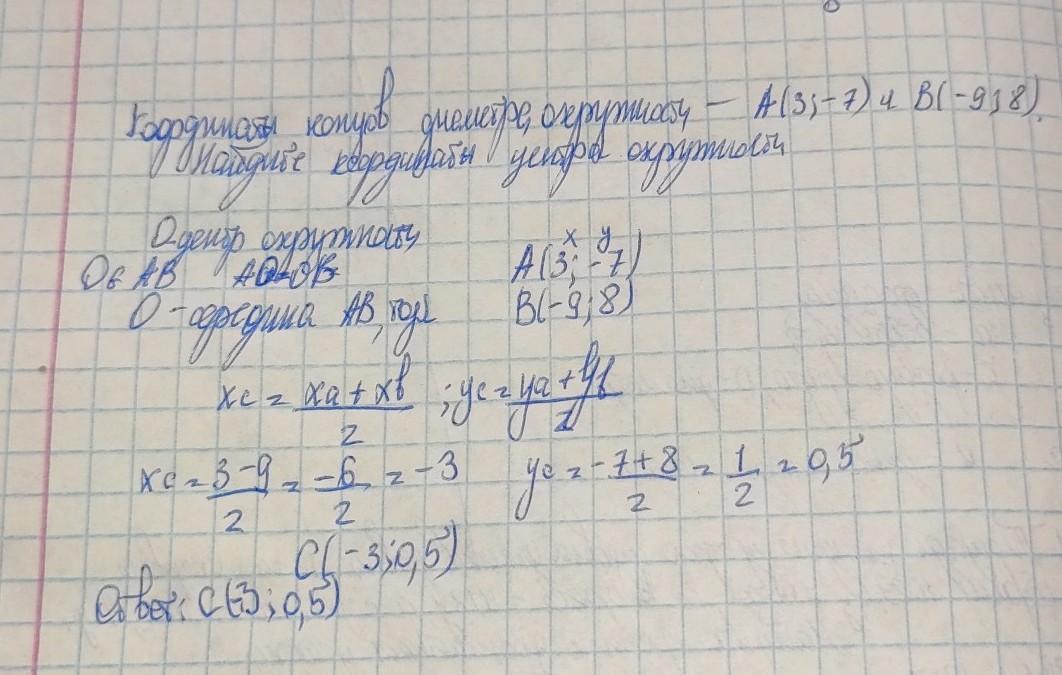 Координаты концов диаметра окружности — A(3;-7) и B(-9;8).
Найдите координаты центра окружности
O центр окружности
O ∈ AB AO=OB
x y
A(3;-7)
O - середина AB, тогда
B(-9;8)
xc = xa + xb / 2 ; yc = ya + yb / 2
xc = 3-9 / 2 = -6 / 2 = -3 yc = -7+8 / 2 = 1 / 2 = 0,5
C(-3;0,5)
Ответ: C(-3;0,5)